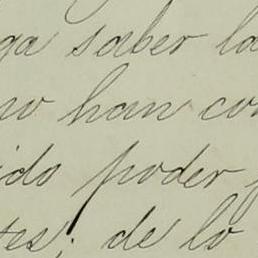 ga saber la
no han con
ido poder p
tes; de lo